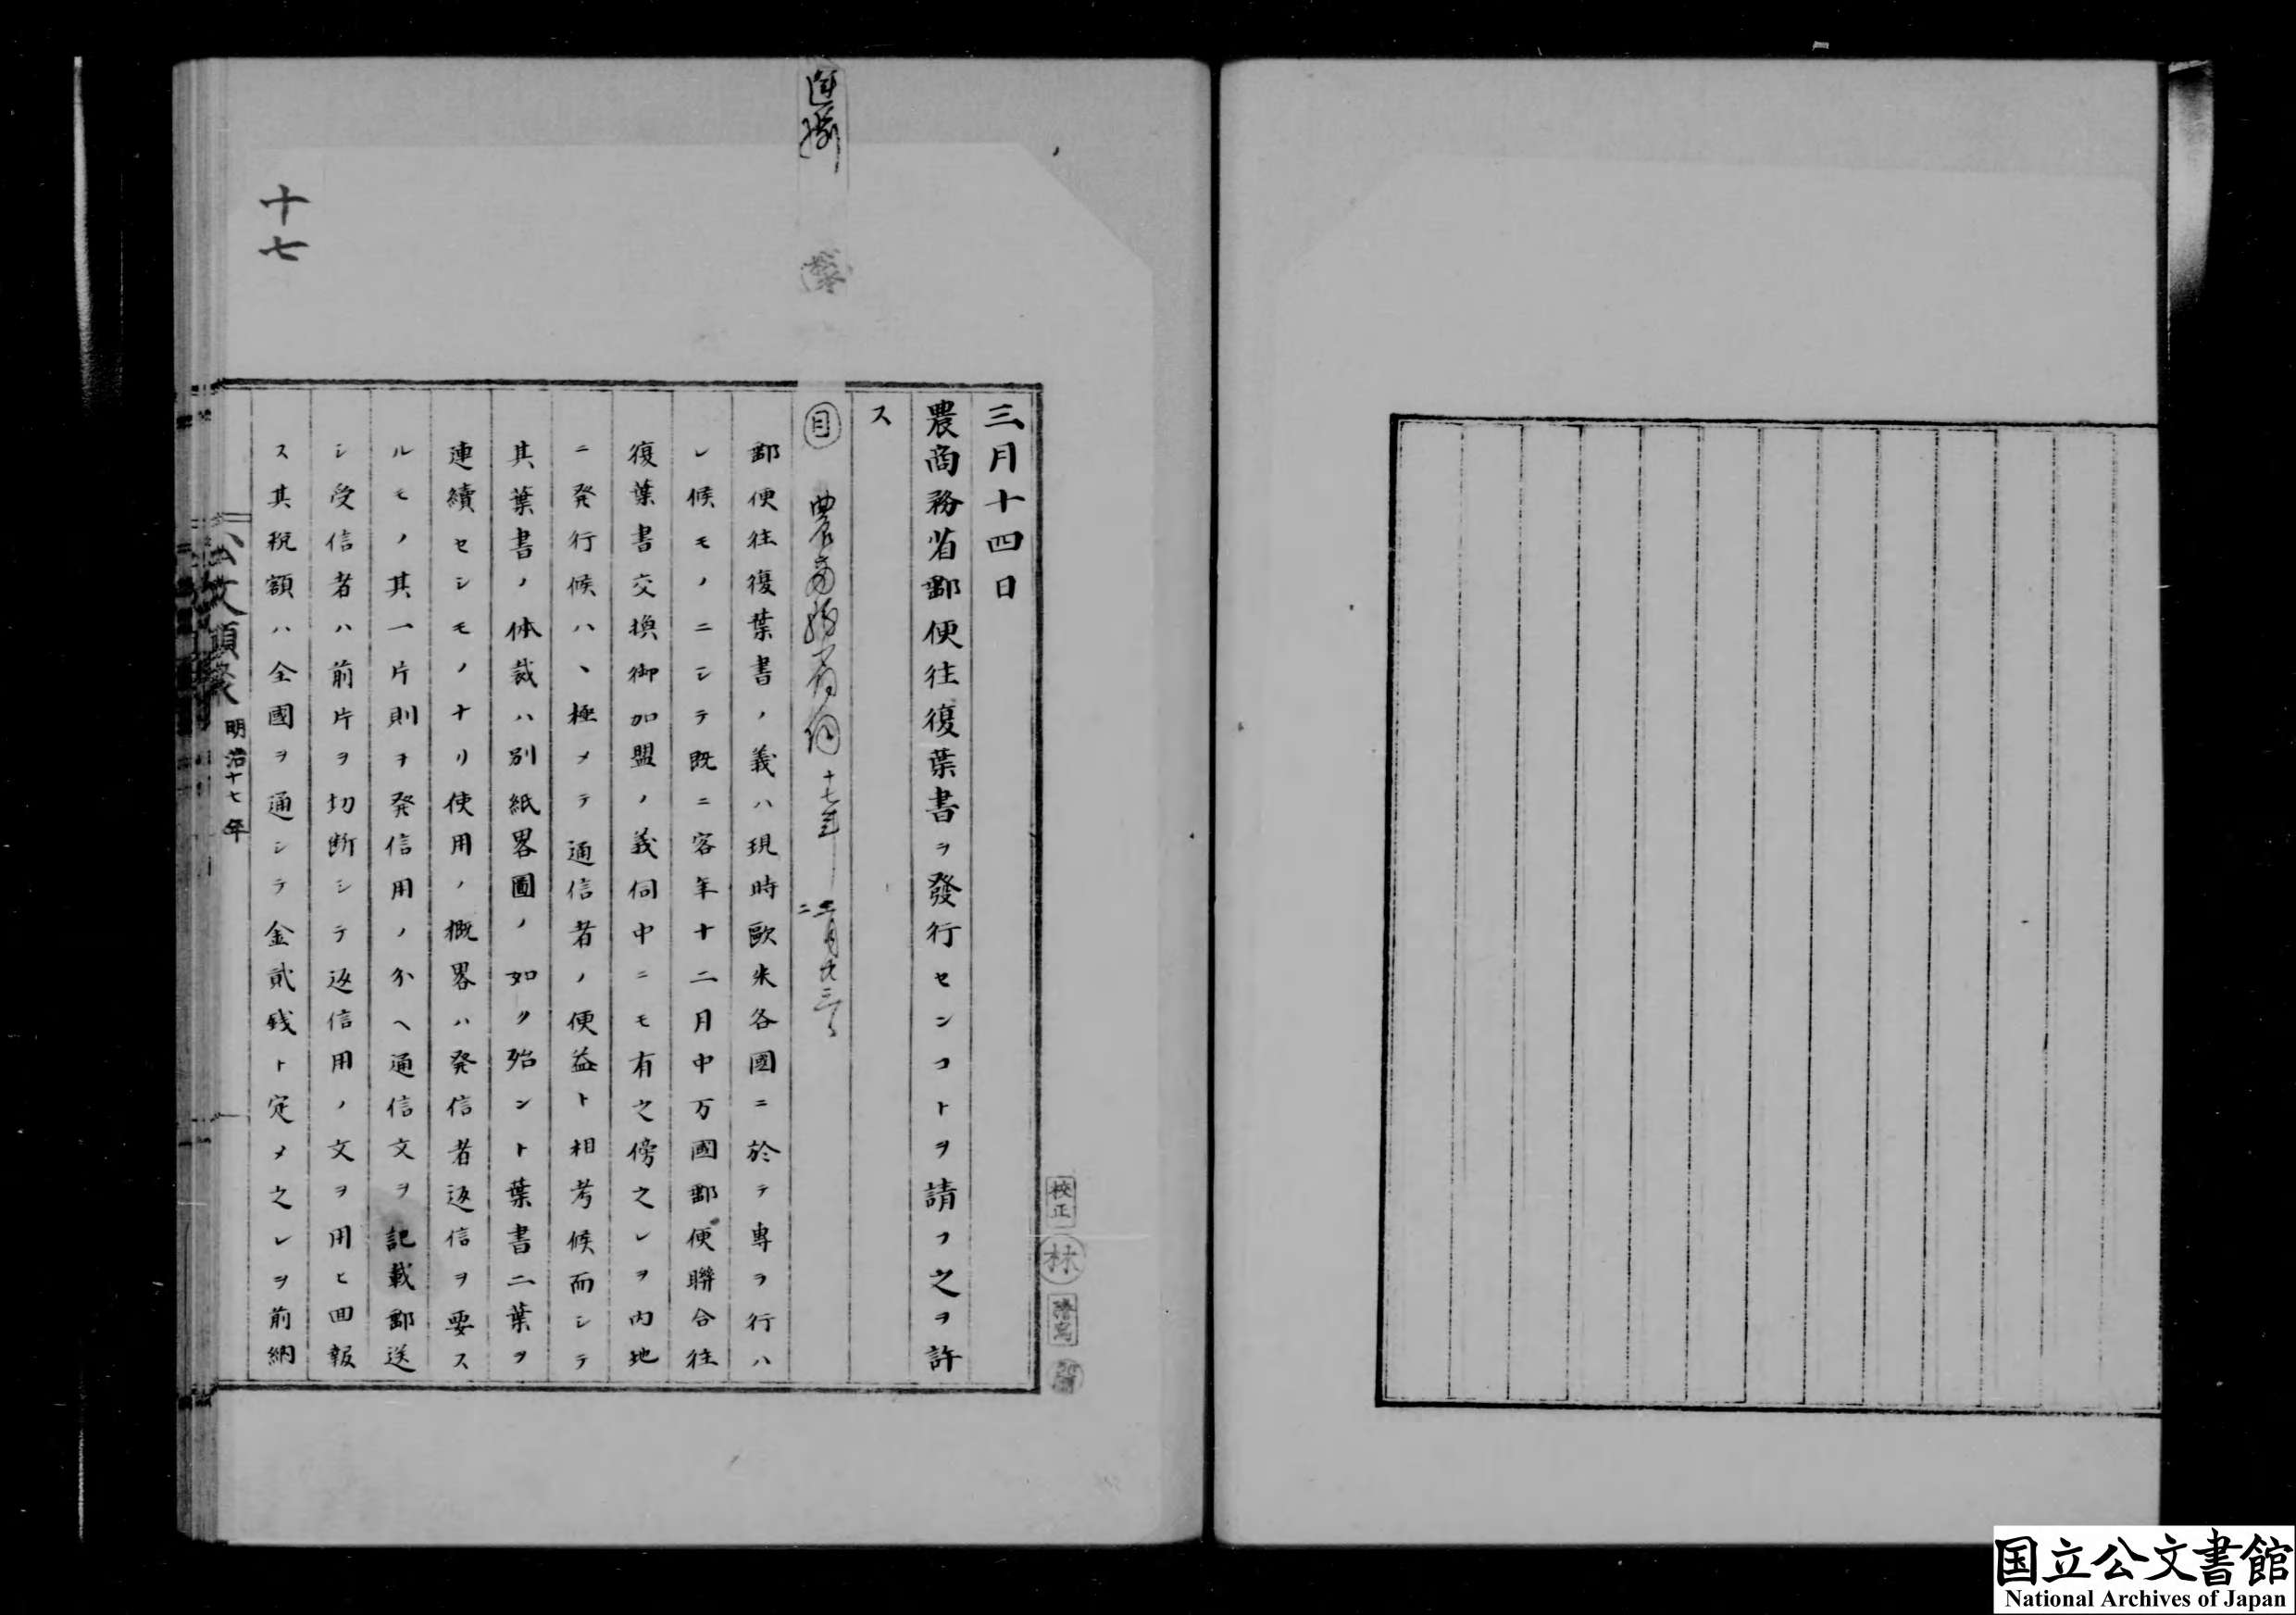 三月十四日
農商務省郵便往復葉書ヲ發行センコトヲ請フ之ヲ許
ス
目 農商務省伺 十七年 二月廿三日
郵便往復葉書ノ義ハ現時歐米各國ニ於テ專ラ行ハ
レ候モノニシテ既ニ客年十二月中万國郵便聯合往
復葉書交換御加盟ノ義伺中ニモ有之傍之レヲ内地
ニ発行候ハヽ極メテ通信者ノ便益ト相考候而シテ
其葉書ノ体裁ハ別紙畧圖ノ如ク殆ント葉書二葉ヲ
連續セシモノナリ使用ノ概畧ハ発信者返信ヲ要ス
ルモノ其一片則ヲ発信用ノ分へ通信文ヲ記載郵送
シ受信者ハ前片ヲ切断シテ返信用ノ文ヲ用ヒ回報
ス其税額ハ全國ヲ通シテ金貳銭ト定メ之レヲ前納
公文類聚 明治十七年
十七
校正
林
国立公文書館
National Archives of Japan